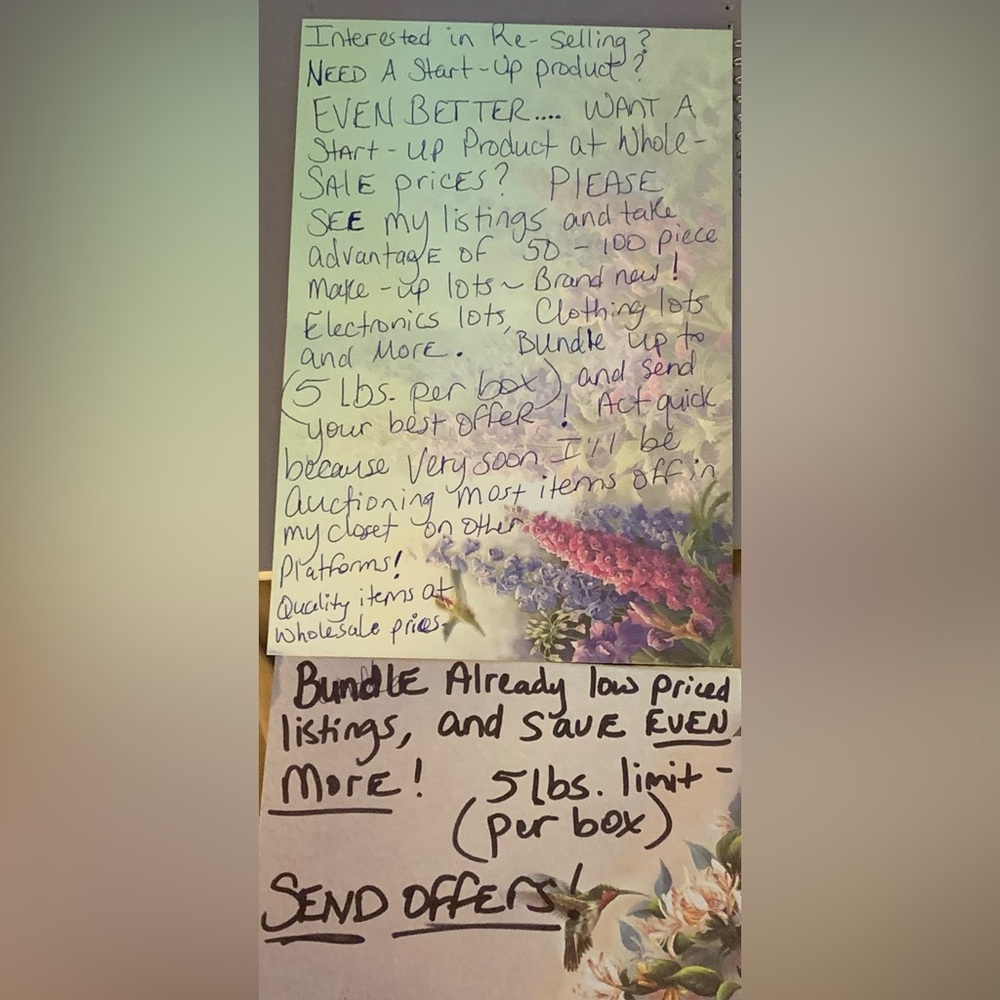 Interested in Re-Selling?
NEED A Start-Up product?
EVEN BETTER.... WANT A
Start-Up Product at Whole-
SALE prices? PLEASE
SEE my listings and take
advantagE of 50-100 piece
Make-up lots~ Brand new!
Electronics lots, Clothing lots
and MORE. Bundle up to
(5 Lbs. per box) and send
your best offer! Act quick
because Very soon I'll be
Auctioning most items off in
my closet on other
Platforms!
Quality items at
Wholesale prices.
BundLE Already low priced
listings, and SAVE EVEN
MorE! 5 lbs. limit-
(per box)
SEND OFFERS!